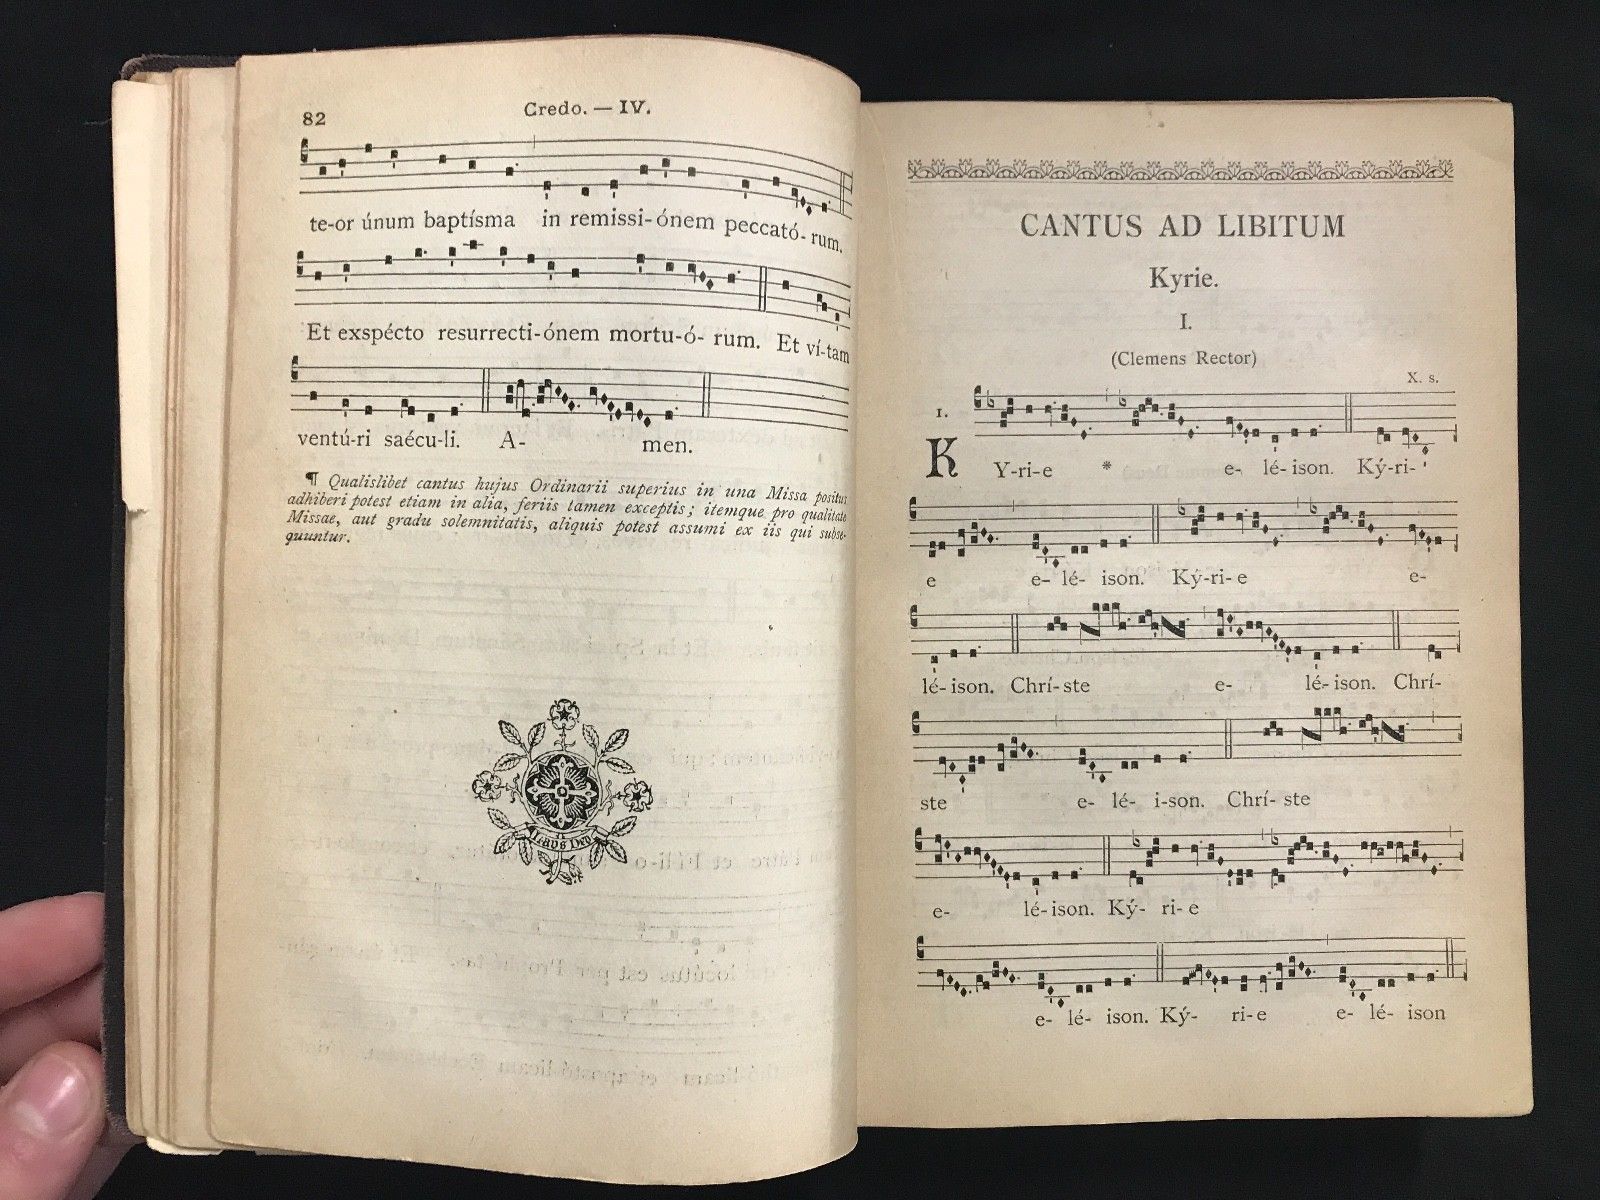 82
Credo. — IV.
te-or únum baptísma in remissi-ónem peccató-rum.
Et exspécto resurrecti-ónem mortu-ó- rum. Et ví-tam
ventú-ri saécu-li. A- men.
¶ Qualislibet cantus hujus Ordinarii superius in una Missa positus
adhiberi potest etiam in alia, feriis tamen exceptis; itemque pro qualitate
Missae, aut gradu solemnitatis, aliquis potest assumi ex iis qui subse-
quuntur.
Laus Deo
CANTUS AD LIBITUM
Kyrie.
I.
(Clemens Rector)
X. s.
1.
KY-ri-e * e- lé-ison. Ký-ri-
e e- lé- ison. Ký-ri-e e-
lé-ison. Chrí-ste e- lé-ison. Chrí-
ste e- lé- i-son. Chrí- ste
e- lé-ison. Ký- ri-e
e- lé- ison. Ký- ri-e e- lé- ison